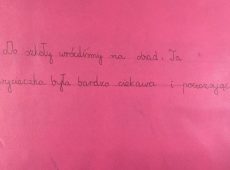 Do szkoły wróciliśmy na obiad. Ta
wycieczka była bardzo ciekawa i